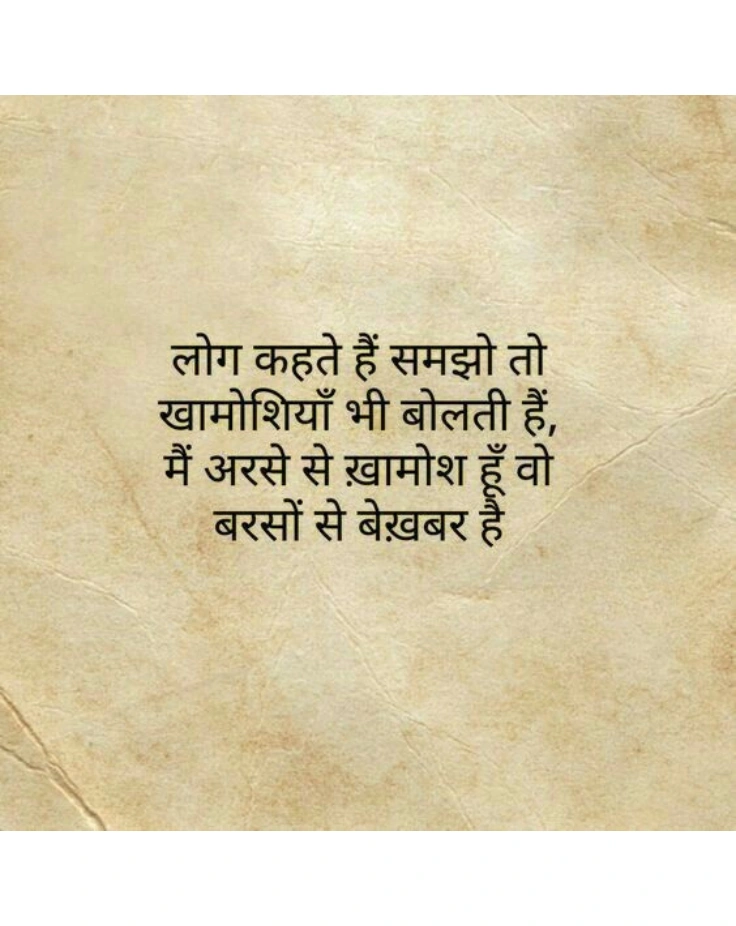 लोग कहते हैं समझो तो
खामोशियाँ भी बोलती हैं,
मैं अरसे से ख़ामोश हूँ वो
बरसों से बेख़बर है